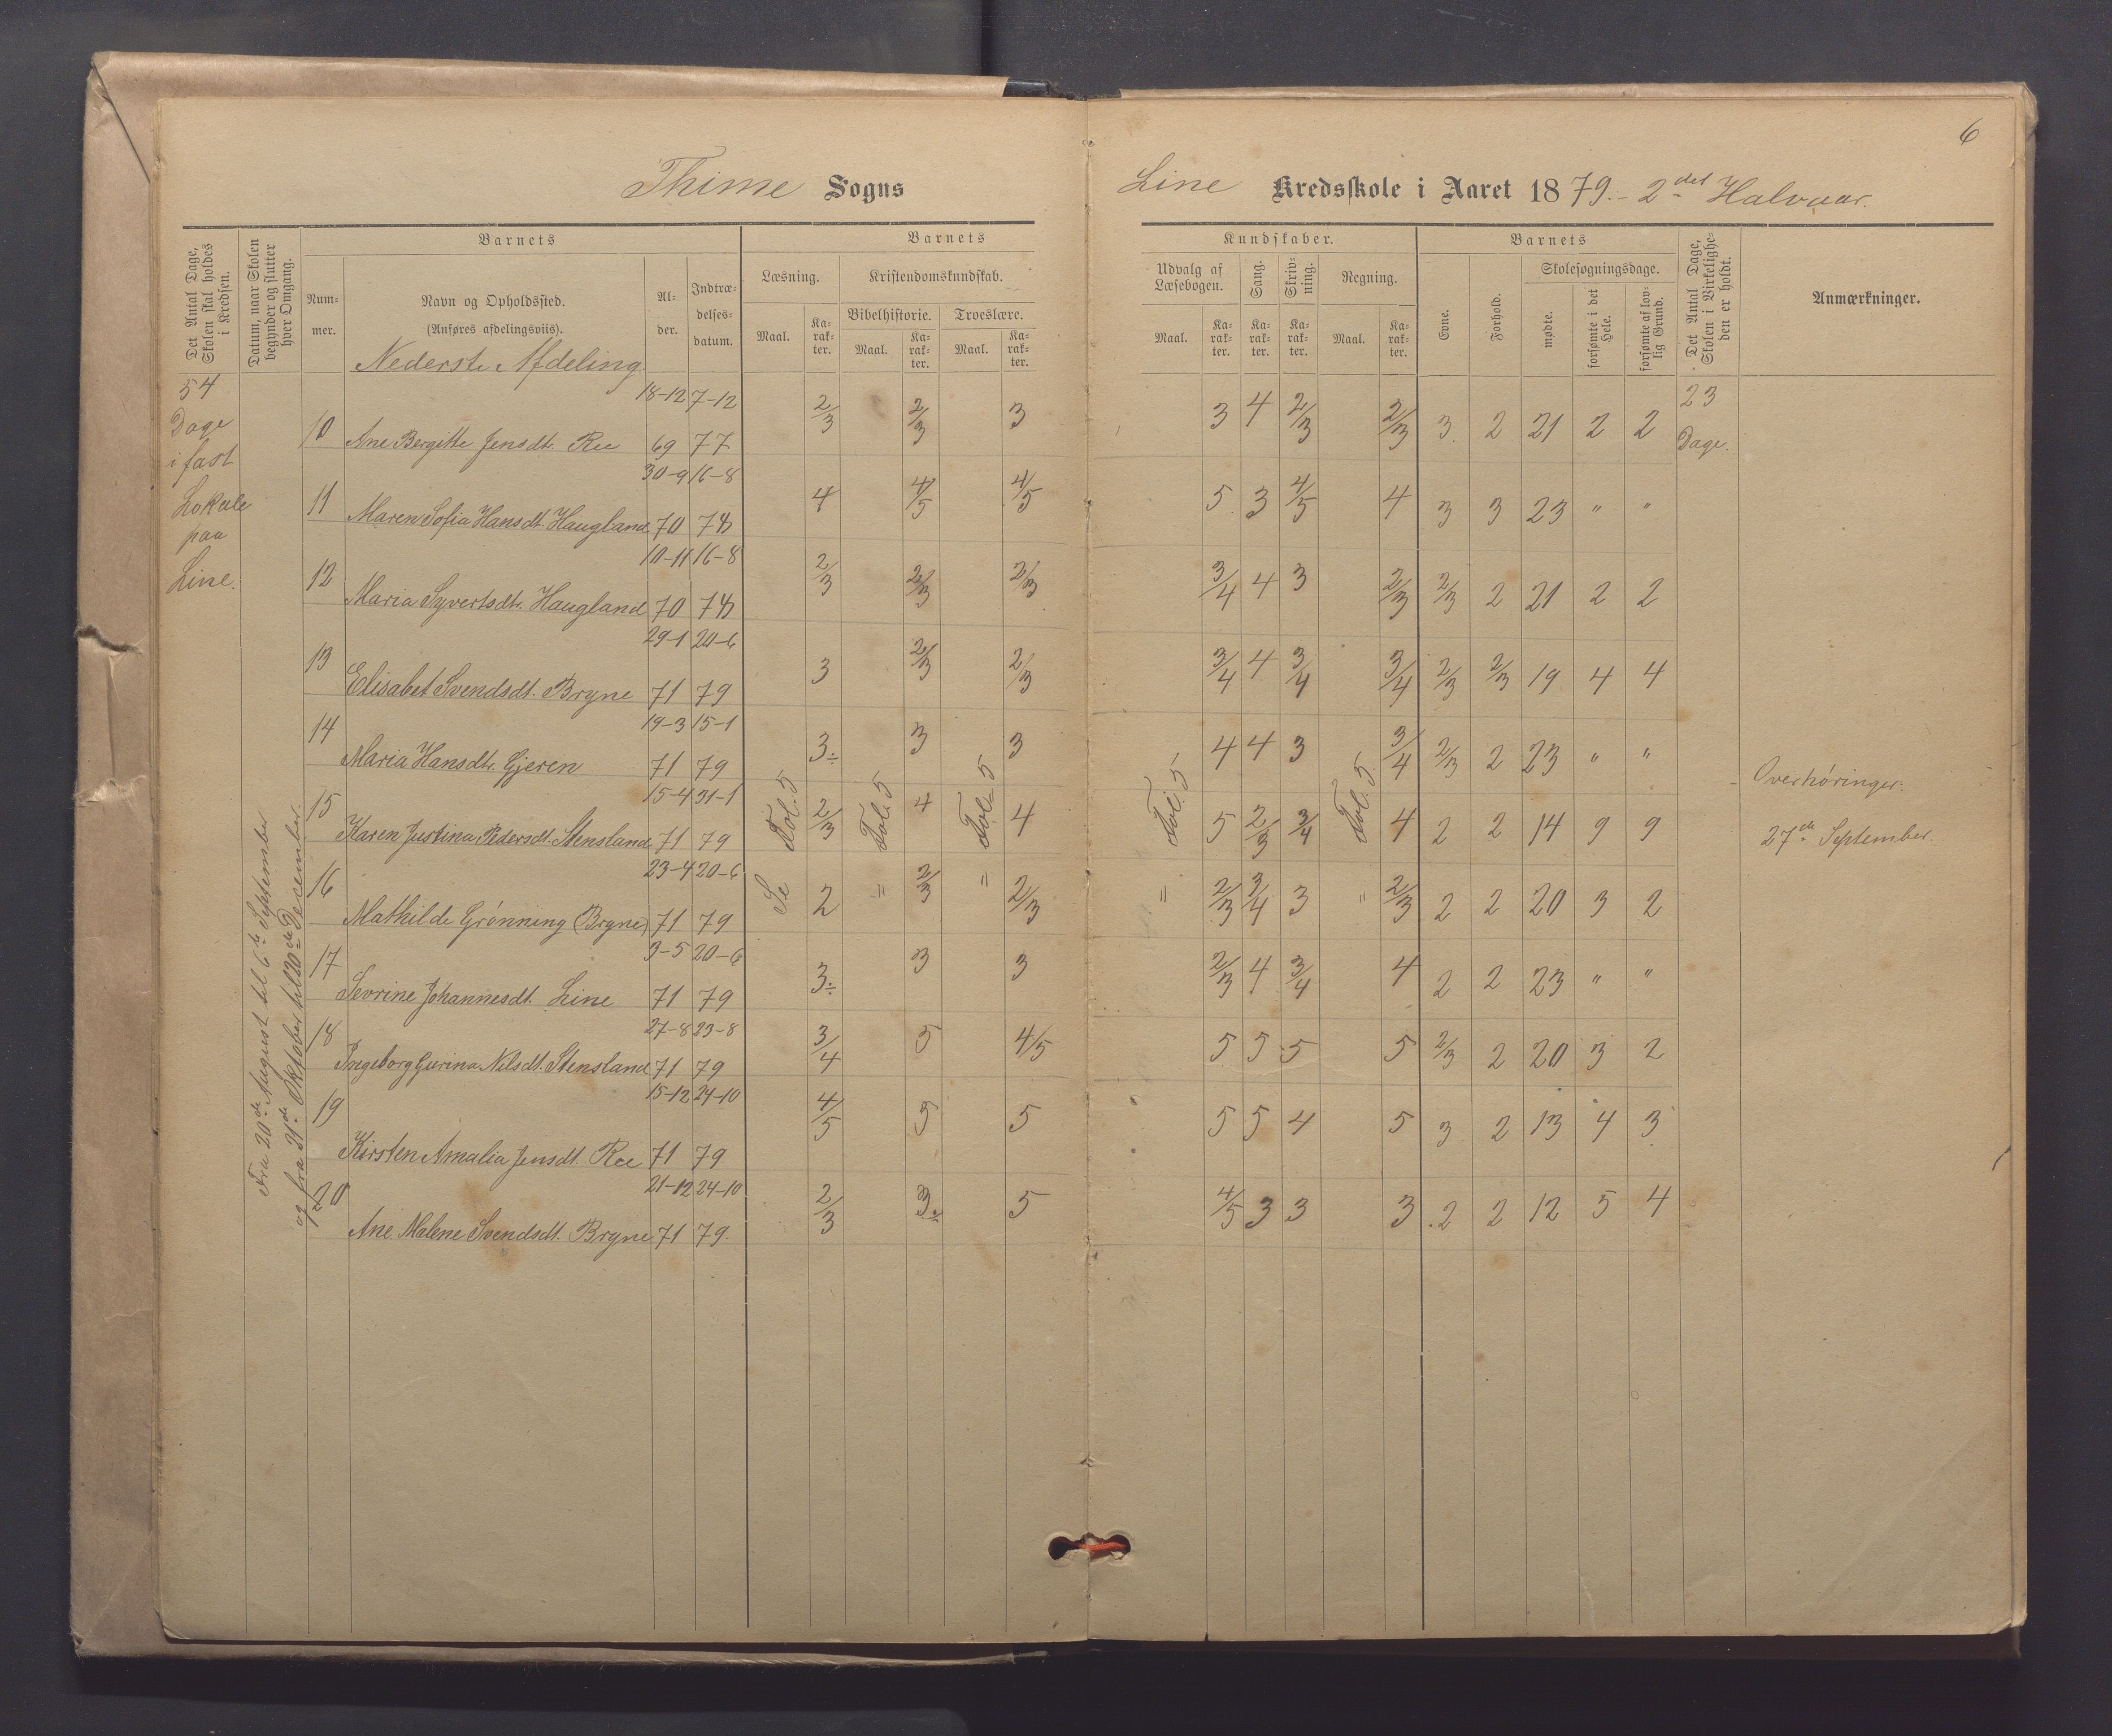 6
Thime Sogns
Line Kredsskole i Aaret 1879. - 2det Halvaar.
Det Antal Dage, Skolen skal holdes i Kredsen.
Datum, naar Skolen begynder og slutter hver Omgang.
Barnets
Barnets
Kundskaber.
Barnets
Det Antal Dage, Skolen i Virkeligheden er holdt.
Anmærkninger.
Nummer.
Navn og Opholdssted.
(Anføres afdelingsviis).
Alder.
Indtrædelsesdatum.
Læsning.
Kristendomskundskab.
Bibelhistorie.
Troeslære.
Udvalg af Læsebogen.
Sang.
Skrivning.
Regning.
Evne.
Forhold.
Skolesøgningsdage.
mødte.
forsømte i det Hele.
forsømte af lovlig Grund.
Maal. Karakter. Maal. Karakter. Maal. Karakter.
Maal. Karakter. Karakter. Karakter. Maal. Karakter.
Nederste Afdeling.
54
Dage
i fast
Lokale
paa
Line.
Fra 20de August til 6te September
og fra 21de Oktober til 20de December.
18-12 7-12
10 Ane Bergitte Jensdt. Ree 69 77 2/3 2/3 3 3 4 2/3 2/3 3. 2 21 2 2 23 Dage.
30-9 16-8
11 Maren Sofia Hansdt. Haugland 70 78 4 4/5 4/5 5 3 4/5 4 3 3 23 " "
10-11 16-8
12 Maria Syvertsdt. Haugland 70 78 2/3 2/3 2/3 3/4 4 3 2/3 2/3 2 21 2 2
29-1 20-6
13 Elisabet Svendsdt. Bryne 71 79 3 2/3 2/3 3/4 4 3/4 3/4 2/3 2/3 19 4 4
19-3 15-1
14 Maria Hansdtr. Gjeren 71 79 3÷ 3 3 4 4 3 3/4 2/3 2 23 " "
15-4 31-1
15 Karen Justina Pedersdt. Stensland 71 79 Fol. 5 2/3 Fol. 5 4 Fol. 5 4 Fol. 5 5 2/3 3/4 Fol. 5. 4 2 2 14 9 9
23-4 20-6
16 Mathilde Grønning (Bryne) 71 79 Se 2 " 2/3 " 2/3 " 2/3 3/4 3 " 2/3 2 2 20 3 2
3-5 20-6
17 Sevrine Johannesdt. Line 71 79 3÷ 3 3 2/3 4 3/4 4 2 2 23 " "
27-8 23-8
18 Ingeborg Gurina Nilsdt. Stensland 71 79 3/4 5 4/5 5 5 5 5 2/3 2 20 3 2
15-12 24-10
19 Kirsten Amalia Jensdt. Ree 71 79 4/5 5 5 5 5 4 5 3 2 13 4 3
21-12 24-10
20 Ane Malene Svendsdt. Bryne 71 79. 2/3 3÷ 5 4/5 3 3 3 2 2 12 5 4
Overhøringer:
27de September.